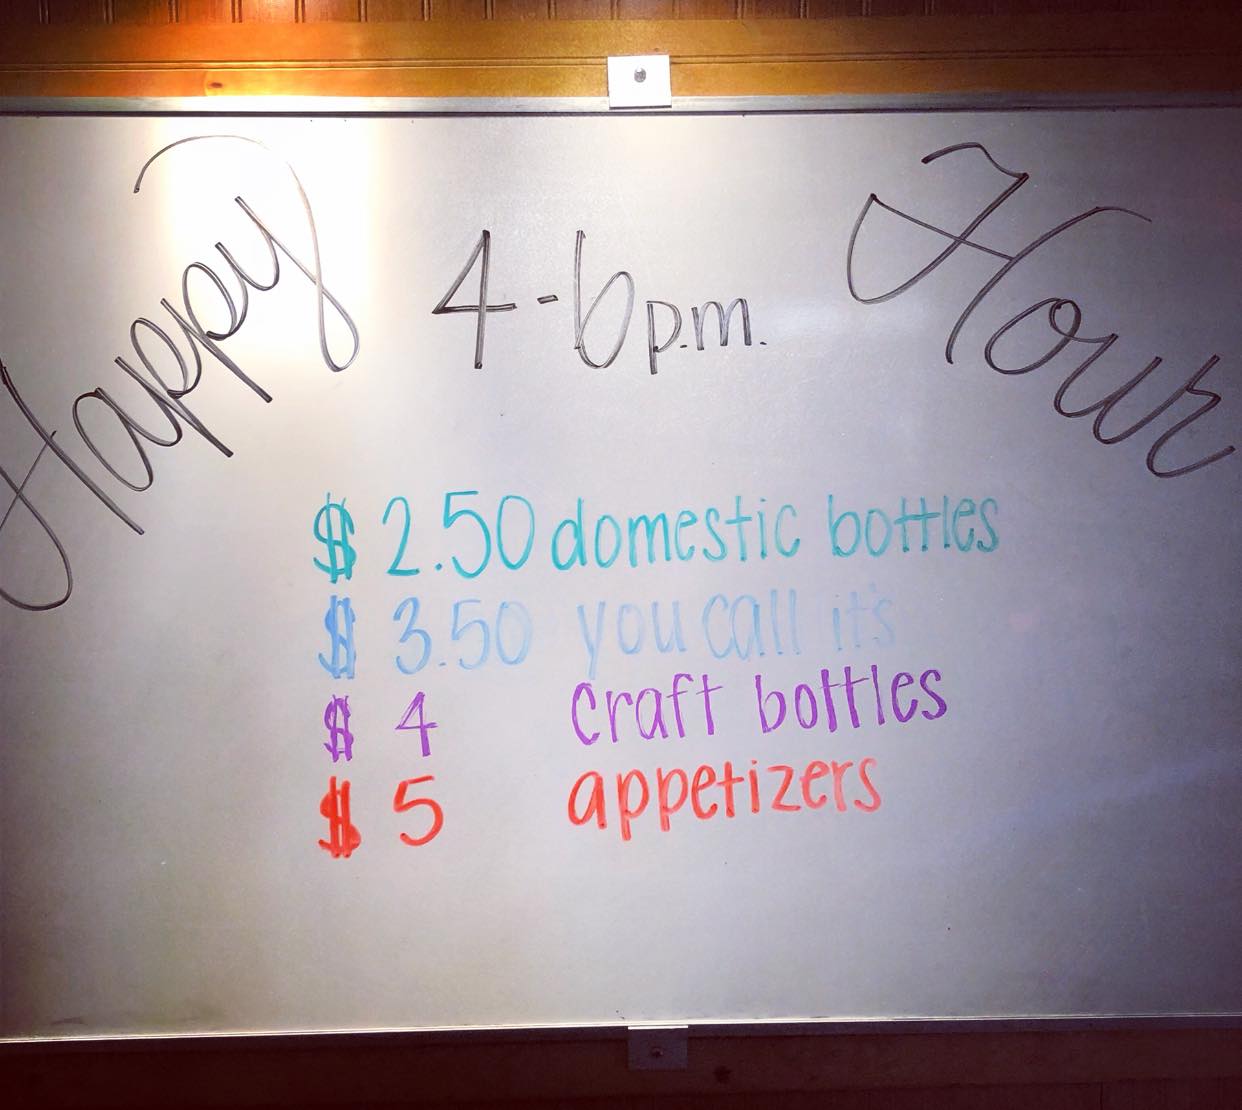 Happy 4-6p.m. Hour
$ 2.50 domestic bottles
$ 3.50 you call it's
$ 4 craft bottles
$ 5 appetizers